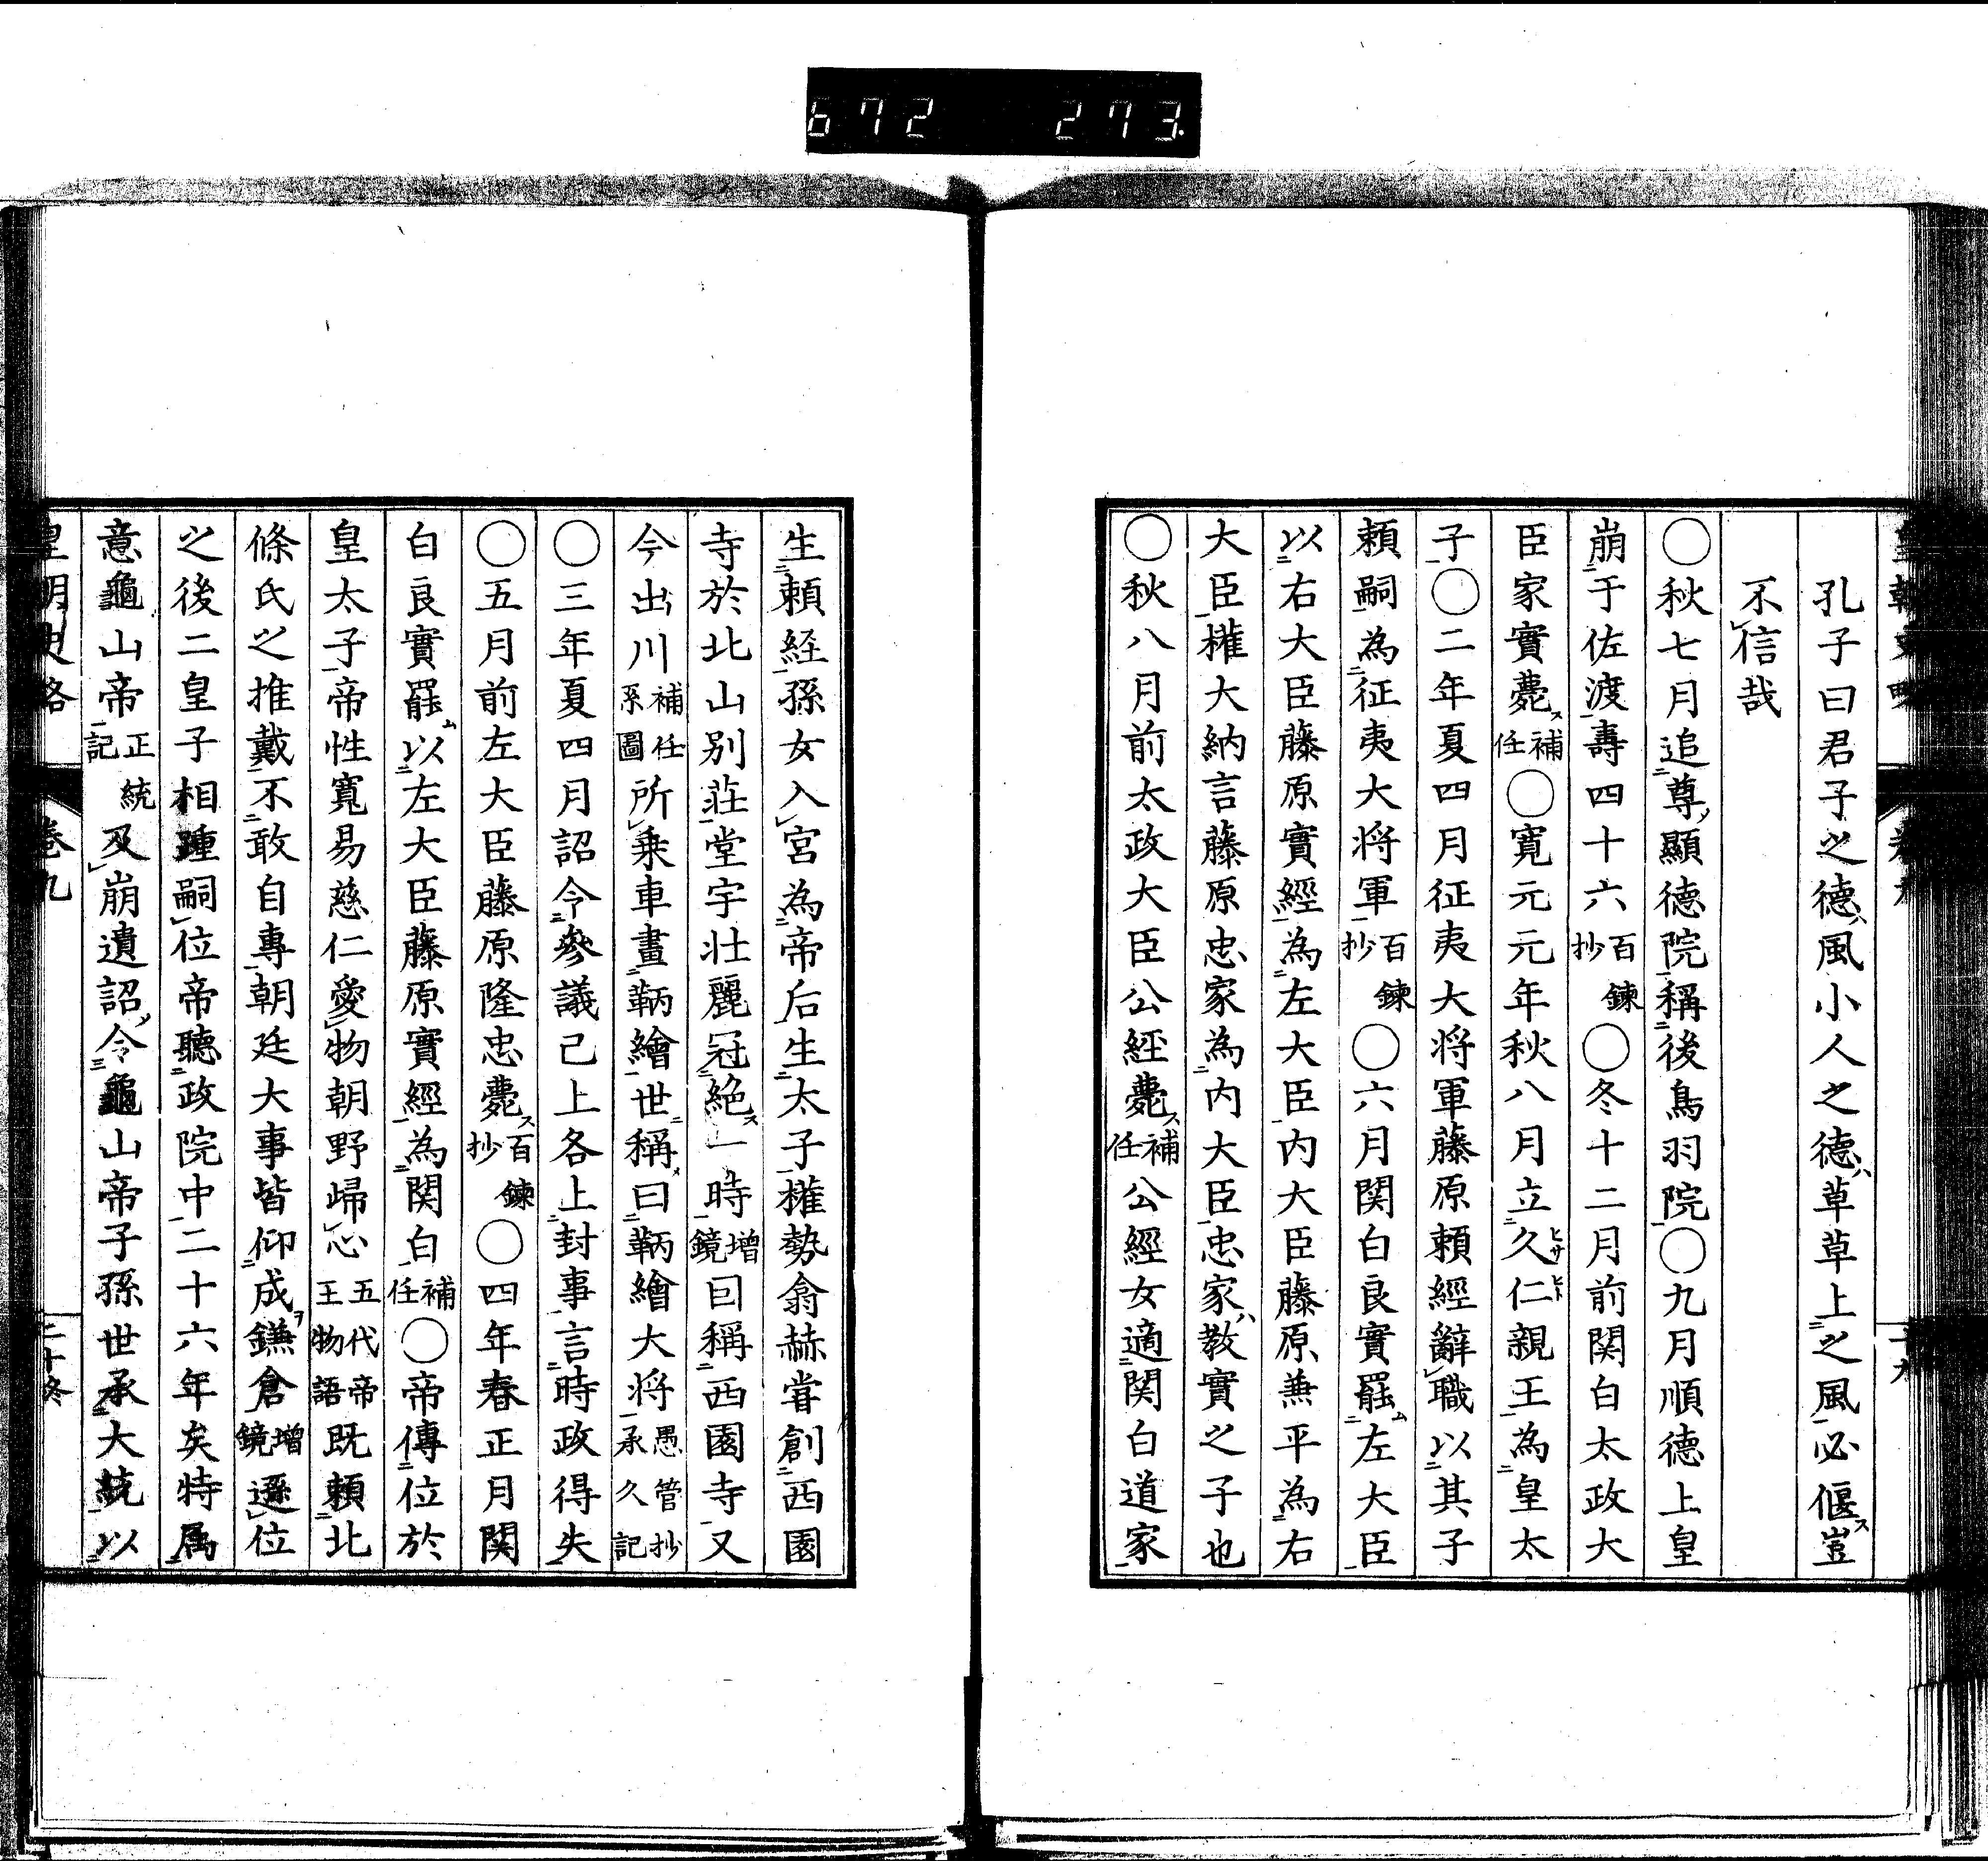 672 273.
孔子曰君子之德風小人之德草草上之風必偃豈
不信哉
○秋七月追尊顯德院稱後鳥羽院○九月順德上皇
崩于佐渡壽四十六百鍊抄○冬十二月前関白太政大
臣家實薨補任○寛元元年秋八月立久仁親王為皇太
子○二年夏四月征夷大将軍藤原頼經辭職以其子
頼嗣為征夷大将軍百鍊抄○六月関白良實罷左大臣
以右大臣藤原實經為左大臣内大臣藤原兼平為右
大臣權大納言藤原忠家為内大臣忠家教實之子也
○秋八月前太政大臣公經薨補任公經女適関白道家
生頼経孫女入宮為帝后生太子權勢翕赫甞創西園
寺於北山別莊堂宇壮麗冠絶一時增鏡曰稱西園寺又
今出川補任系圖所乗車畫鞆繪世稱曰鞆繪大将愚管抄承久記
○三年夏四月詔令參議已上各上封事言時政得失
○五月前左大臣藤原隆忠薨百鍊抄○四年春正月関
白良實罷以左大臣藤原實經為関白補任○帝傳位於
皇太子帝性寛易慈仁愛物朝野歸心五代帝王物語既頼北
條氏之推戴不敢自專朝廷大事皆仰成鎌倉增鏡遜位
之後二皇子相踵嗣位帝聽政院中二十六年矣特属
意龜山帝正統記及崩遺詔令龜山帝子孫世承大統以
卷九